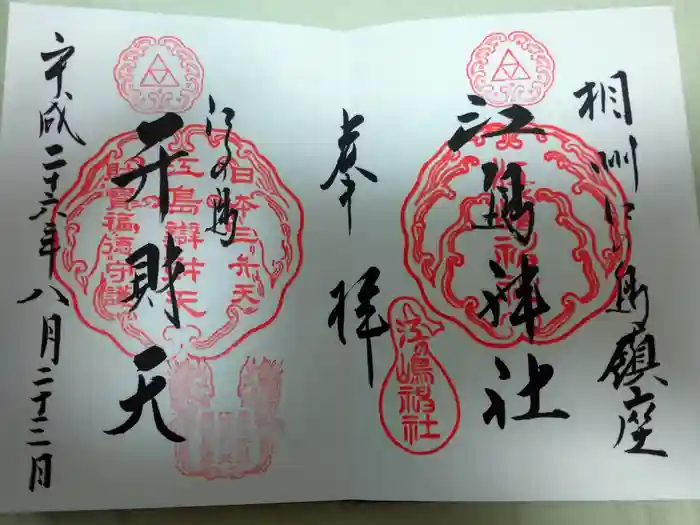 相州江ノ島鎮座
江島神社
奉拝
江島神社
江の島
弁財天
日本三弁天
江島辯財天
財宝福徳守護
平成二十六年八月二十二日